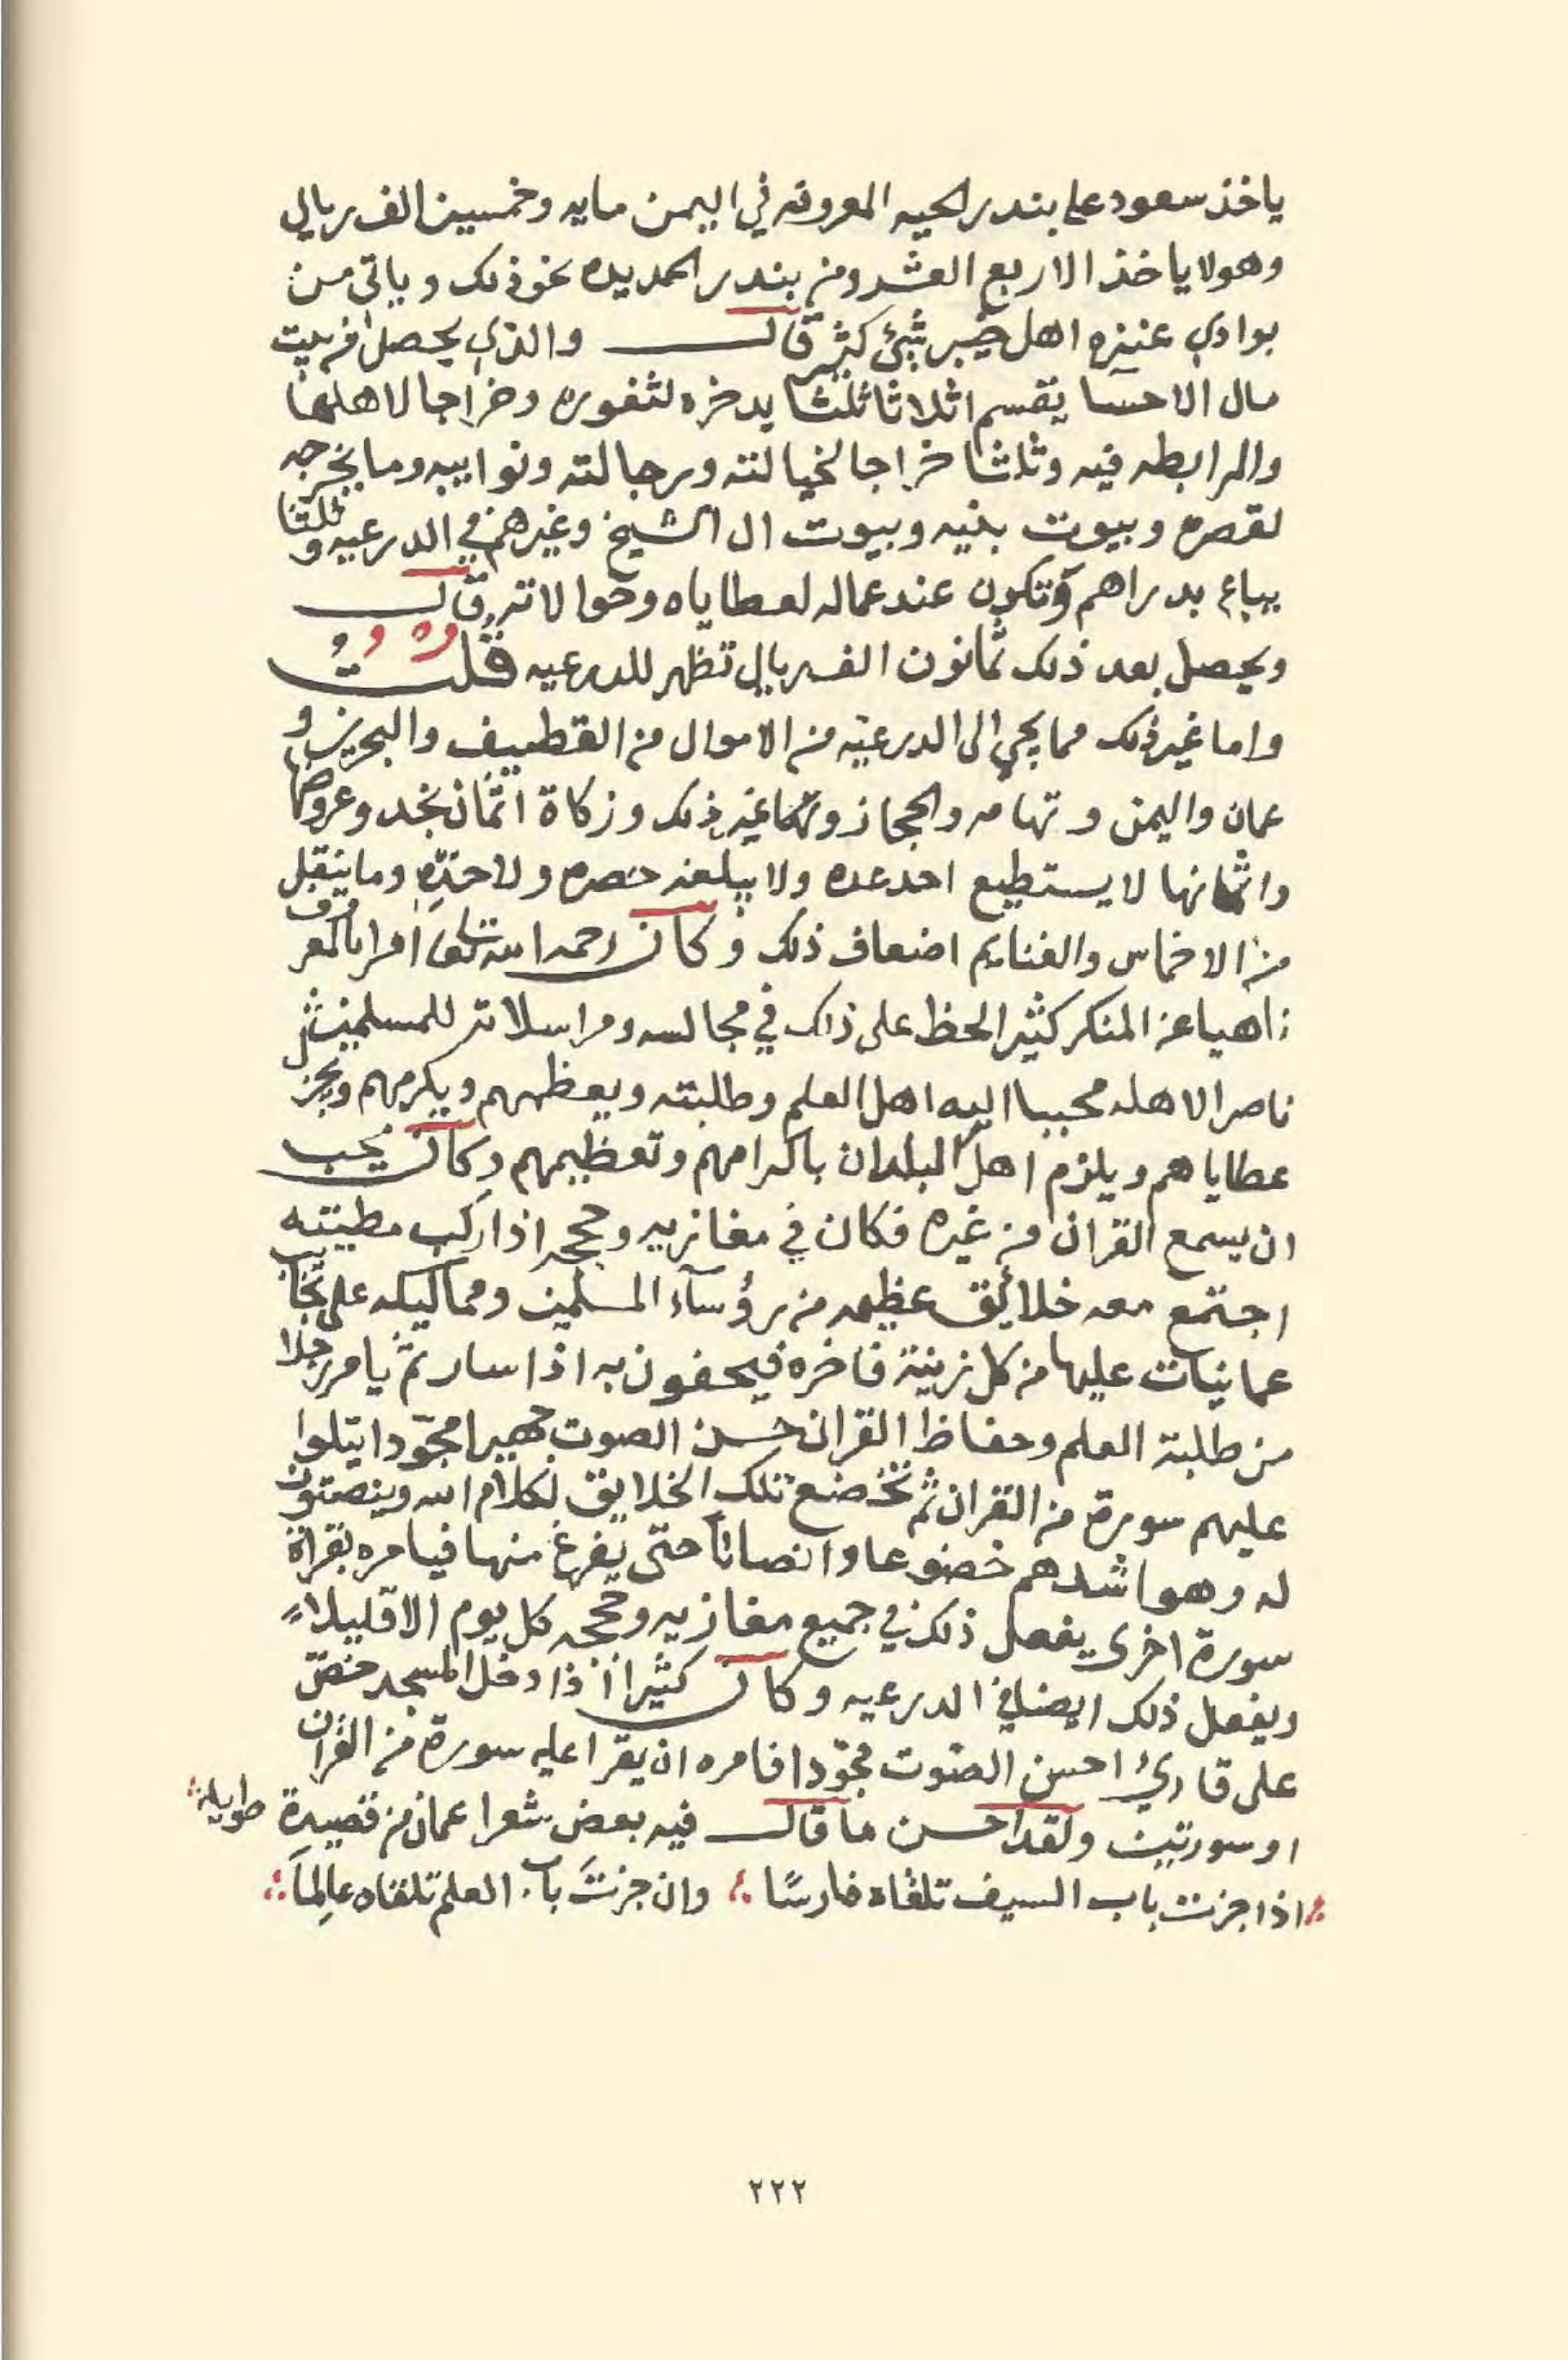 ياخذ سعود على بندر الحيه المعروفه في اليمن مايه وخمسين الف ريال
وهولا ياخذ الا ربع العشر ومن بندر الحديده نحو ذلك وياتي من
بوادي عنزه اهل خيبر شئ كثير قال والذي يحصل من بيت
مال الاحسا يقسم اثلاثا ثلثا يدخره لثغوره وخراجا لاهلها
والمرابطه فيه وثلثا خراجا لخيالته ورجالته ونوايبه وما يخرجه
لقصره وبيوت بنيه وبيوت ال الشيخ وغيرهم في الدرعيه وثلثا
يباع بدراهم وتكون عند عماله لعطاياه وحوالاته قال
ويحصل بعد ذلك ثمانون الف ريال تظهر للدرعيه قلت
واما غير ذلك مما يجي الى الدرعيه من الاموال من القطيف والبحرين و
عمان واليمن وتهامه والحجاز وغير ذلك وزكاة اثمان نجد وعروضها
واثمانها لا يستطيع احد عده ولا يبلغه حصره ولا حده وما ينقل
من الاخماس والغنايم اضعاف ذلك وكان رحمه الله تعالى امرا بالمعروف
ناهيا عن المنكر كثير الحظ على ذلك في مجالسه ومراسلاته للمسلمين
ناصرا لاهله محببا اليه اهل العلم وطلبته ويعظمهم ويكرمهم ويجز
عطاياهم ويلزم اهل البلدان باكرامهم وتعظيمهم وكان يحب
ان يسمع القران من غيره فكان في مغازيه وحججه اذا ركب مطيته
اجتمع معه خلائق عظيمه من رؤسآء المسلمين ومماليكه على نجايب
عمانيات عليها من كل زينة فاخره فيحفون به اذا سار ثم يامر رجلا
من طلبة العلم وحفاظ القران حسن الصوت جهيرا مجودا يتلوا
عليهم سورة من القران ثم تخضع تلك الخلايق لكلام الله وينصتون
له وهو اشدهم خضوعا وانصاتاً حتى يفرغ منها فيامره بقراة
سورة اخرى يفعل ذلك في جميع مغازيه وحججه كل يوم الا قليلاً
ويفعل ذلك ايضا في الدرعيه وكان كثيرا اذا دخل المسجد حض
على قارئ احسن الصوت مجوّدا فامره ان يقرا عليه سورة من القران
او سورتين ولقد احسن ما قال فيه بعض شعرا عمان من قصيدة طويلة
اذا جزت باب السيف تلقاه فارسًا وان جزتَ باب العلم تلقاه عالِماً
٢٢٢